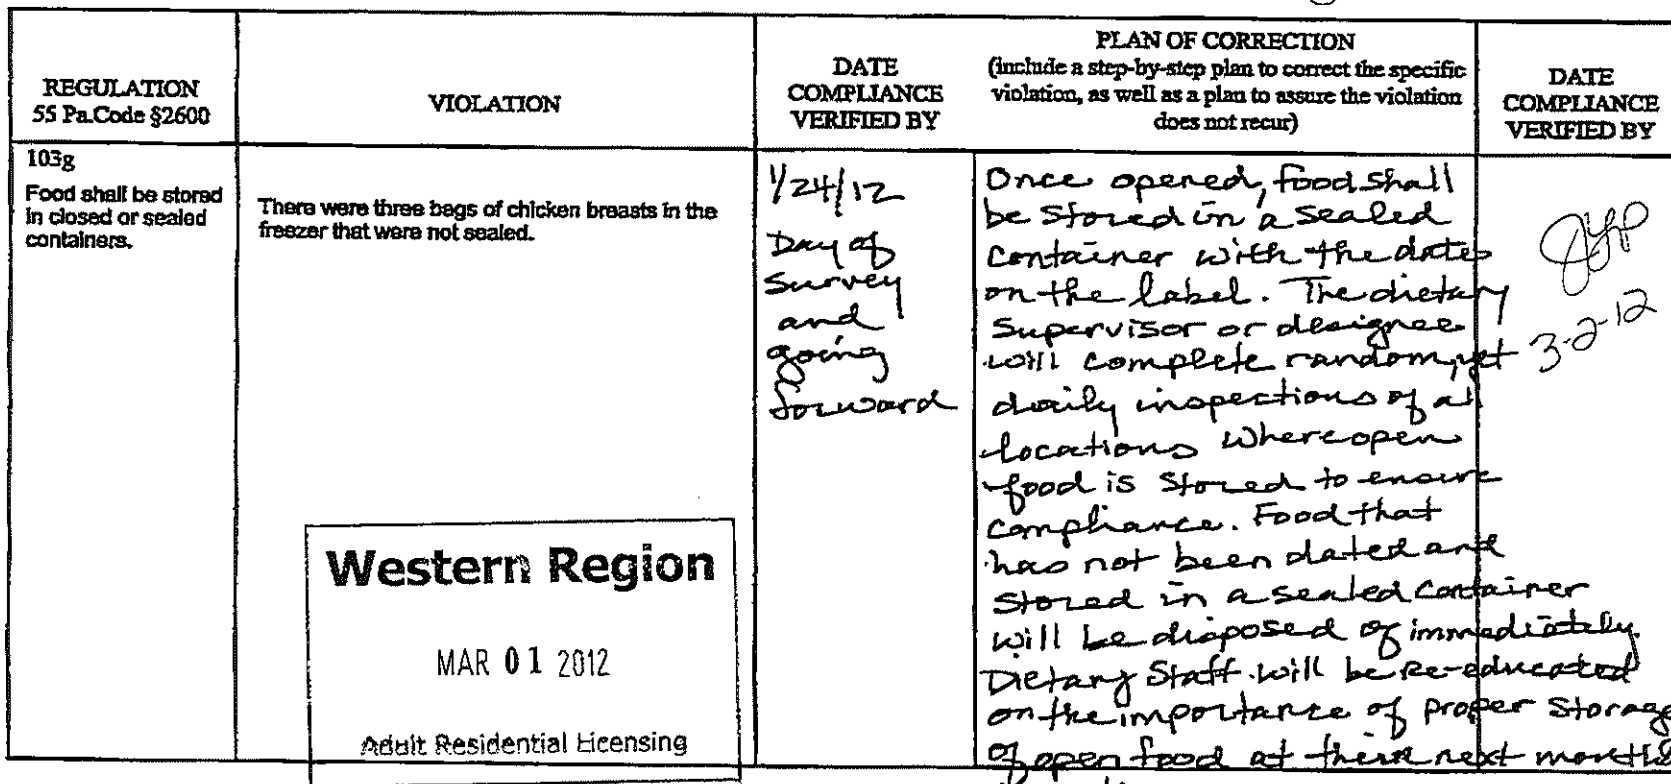 REGULATION
55 Pa.Code §2600
VIOLATION
DATE
COMPLIANCE
VERIFIED BY
PLAN OF CORRECTION
(include a step-by-step plan to correct the specific
violation, as well as a plan to assure the violation
does not recur)
DATE
COMPLIANCE
VERIFIED BY
103g
Food shall be stored
in closed or sealed
containers.
There were three bags of chicken breasts in the
freezer that were not sealed.
1/24/12
Day of
Survey
and
going
forward
Once opened, food shall
be stored in a sealed
container with the dates
on the label. The dietary
Supervisor or designee
will complete random, yet
daily inspections of all
locations where open
food is stored to ensure
compliance. Food that
has not been dated and
stored in a sealed container
will be disposed of immediately.
Dietary Staff will be re-educated
on the importance of proper storage
of open food at their next monthly
3-2-12
Western Region
MAR 01 2012
Adult Residential Licensing